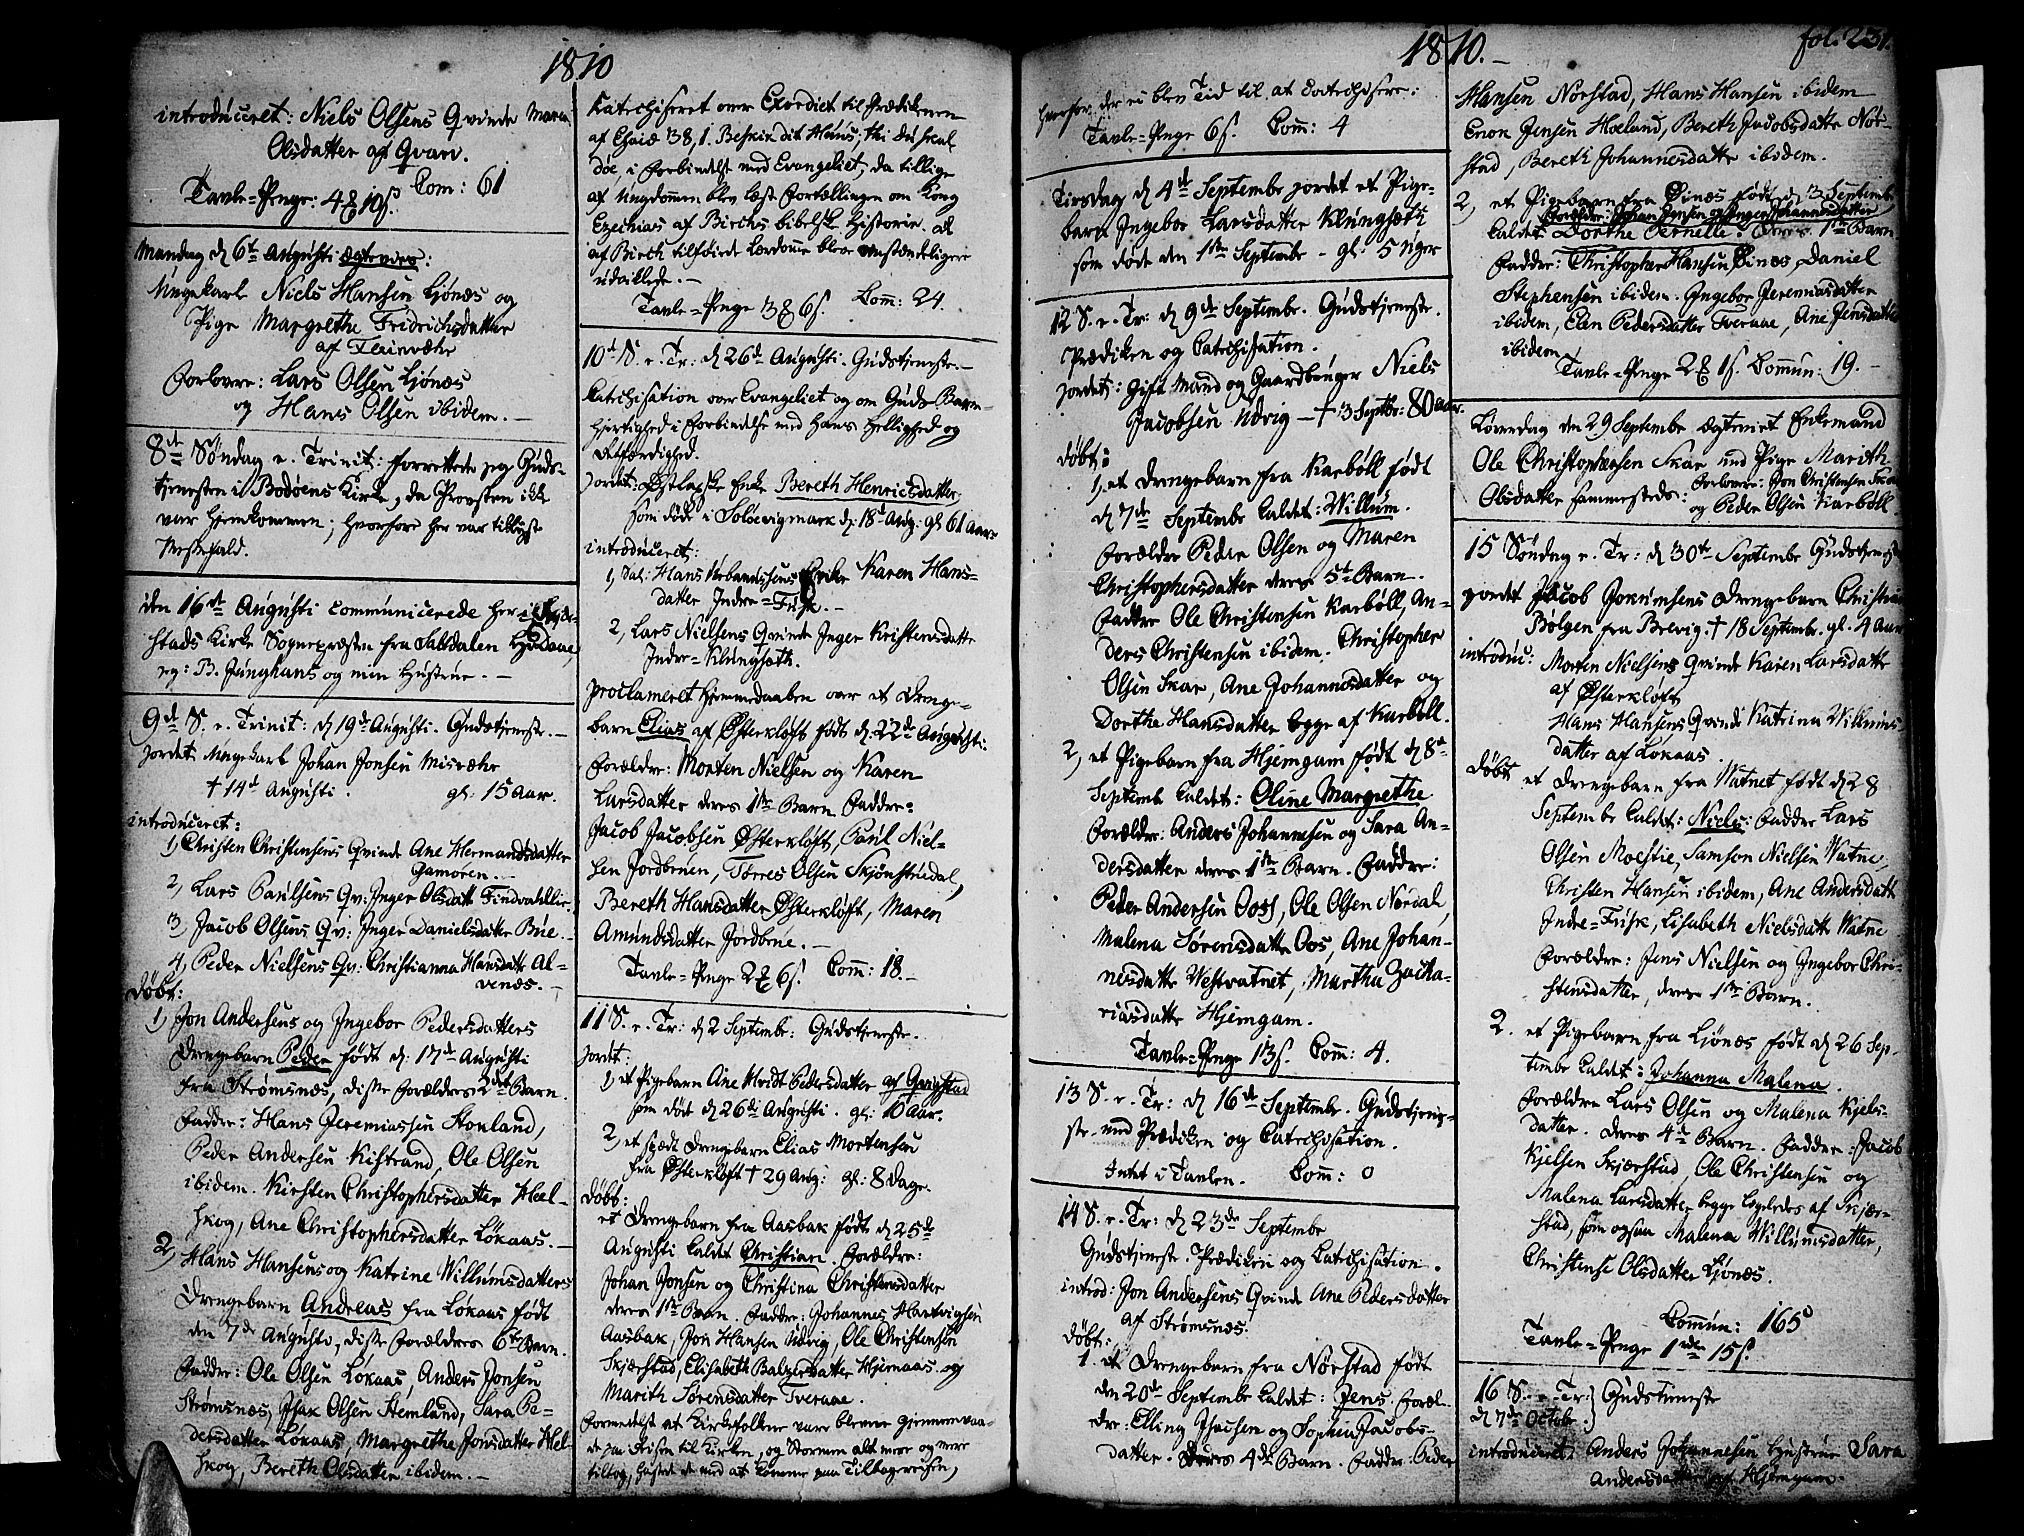 1810
introduceret: Niels Olsens Qvinde Maria
Olsdatter af Qvarv.
Tavle-Penge: 4 10 s. Com: 61
Mandag d 6te Augusti Egteviet:
Ungekarl Niels Hansen Ljønæs og
Pige Margrethe Fridrichsdatter
af Fleinvæhr
Forlovere: Lars Olsen Ljønæs
og Hans Olsen ibidem. —
8de Søndag e. Trinit: forrettede jeg Guds-
tjenesten i Bodøens Kirke, da Provsten ikke
var hjemkommen; hvorfore her var tilligst
Messefald.
den 16de Augusti communicerede her i Skjer-
stads Kirke Sognepræsten fra Saltdalen Hr
og: B. Junghans og min Hustrue. —
9de S. e. Trinit: d 19de Augusti. Gudstjeneste. —
Jordet Ungekarl Johan Jonsen Misvæhr
† 14d Augusti. gl: 15 Aar.
introduceret:
1, Christen Christensens Qvinde Ane Hermandsdatter
Gamoren. —
2, Lars Paulsens Qv: Inger Olsdatt Findvahllie.
3, Jacob Olsens Qv: Inger Danielsdatter Bue. —
4, Peder Nielsens Qv: Christianna Hansdatter Al-
venæs. —
Døbt:
1, Jon Andersens og Ingebor Pedersdatters
Drengebarn Peder født d: 17de Augusti
fra Strømsnæs, disse Forældres 2det Barn.
Faddre: Hans Jeremiassen Stouland,
Peder Andersen Kistrand, Ole Olsen
ibidem. Kirsten Christophersdatter Heel-
skog, Ane Christophersdatter Løkaas. —
2, Hans Hansens og Katrine Willumsdatters
Drengebarn Andreas fra Løkaas født
den 7de Augusti, disse Forældres 6te Barn.
Faddre: Ole Olsen Løkaas, Anders Jonsen
Strømsnæs, Isak Olsen Stemland, Sara Pe-
dersdatter Løkaas, Margrethe Jonsdatter Hel-
skog, Bereth Olsdatter ibidem. —
Katechiseret over Exordiet til Prædikenen
af Esaiæ 38, 1. Beskik dit Huus, thi du skal
døe, i Forbindelse med Evangeliet, da tillige
af Ungdommen blev læst Fortællingen om Kong
Ezechias af Birchs bibelske Historie. De
af Birch tilføiede Lærdomme blev omstændeligere
udviklede. —
Tavle-Penge 3 6 s. Com: 24.
10de S. e. Tr: d 26de Augusti. Gudstjeneste. —
Catechisation over Evangeliet og om Guds Barm-
hjertighed i Forbindelse med hans Hellighed og
Retfærdighed.
Jordet: Østlapske Enke Bereth Henricksdatter,
som døde i Soløevigmark d: 18d Aug: gl 61 Aar.
introduceret:
1, Sal: Hans Urbanussens Enke Karen Hans-
datter Indre-Fusk. —
2, Lars Nielsens Qvinde Inger Kristensdatter
Indre-Klungsæth.
proclameret Hjemmedaaben over et Drenge-
barn Elias af Østerkløft født d. 22de Augusti:
Forældre: Morten Nielsen og Karen
Larsdatter deres 1ste Barn Faddre:
Jacob Jacobsen Østerkløft, Paul Niel-
sen Jordbruen, Torres Olsen Skjønstudal,
Bereth Hansdatter Østerkløft, Maren
Amundsdatter Jordbrue. —
Tavle-Penge 2 6 s. Com: 18. —
11 S. e. Tr: d 2 Septembr: Gudstjeneste.
Jordet:
1, et Pigebarn Ane Hvidt Pedersdatter af Qvigstad
som døde d 26de Augusti. gl: 10 Aar.
2, et spædt Drengebarn Elias Mortensen
fra Østerkløft † 29 Aug: gl: 8 Dage.
Døbt:
et Drengebarn fra Aasbak født d 25de
Augusti kaldet Christian. Forældre:
Johan Jonsen og Christina Christensdatter
deres 1ste Barn. Faddre: Johannes Hartvigsen
Aasbak, Jon Hansen Udvig, Ole Christensen
Skjærstad, Elisabeth Baltzersdatter Hjemaas og
Marith Sørensdatter Tveraae.
Formedelst at Kirkefolkene vare blevne gjennemvaa-
de paa Reisen til Kirken, og Stormen alt mere og mere
tiltog, hastede de med at komme paa Tilbagereisen,
1810. —
fol. 231.
hvorfor der ei blev Tid til at Catechisere:
Tavle-Penge 6 s. Com: 4
Tirsdag d 4de Septembr jordet et Pige-
barn Ingebor Larsdatter Klungsæth
som døde den 1ste Septembr — gl: 5 Uger
12 S. e. Tr: d 9de Septembr. Gudstjeneste.
Prædiken og Catechisation.
Jordet: Gift Mand og Gaardbruger Niels
Jacobsen Udvig — † 3 Septbr: 80 Aar.
Døbt:
1, et Drengebarn fra Karbøll født
d 7de Septembr kaldet: Willum.
Forældre Peder Olsen og Maren
Christophersdatter deres 5te Barn.
Faddre Ole Christensen Karbøll, An-
ders Christensen ibidem. Christopher
Olsen Skar, Ane Johannesdatter og
Dorthe Hansdatter begge af Karbøll.
2, et Pigebarn fra Hjemgam født d 8de
Septemb kaldet: Oline Margrethe
Forældre: Anders Johannesen og Sara An-
dersdatter deres 1ste Barn. Faddre:
Peder Andersen Oos, Ole Olsen Nordal,
Malena Sørensdatter Oos, Ane Johan-
nesdatter Westvatnet, Martha Zacha-
riasdatter Hjemgam.
Tavle-Penge 13 s. Com: 4.
13 S. e. Tr: d 16de Septembr. Gudstjene-
ste med Prædiken og Catechisation.
Intet i Tavlen. Com: 0
14 S. e. Tr: d 23de Septembr
Gudstjeneste. Prædiken og Catechisation.
introd: Jon Andersens Qvinde Ane Pedersdatter
af Strømsnæs.
Døbt:
1. et Drengebarn fra Nørstad født
den 20de Septembr kaldet: Jens. Foræl-
dre: Elling Isachsen og Sophia Jacobs-
datter. Deres 4de Barn. Faddre: Peder
Hansen Norstad, Hans Hansen ibidem
Enok Jensen Hoeland, Bereth Jacobsdatter Nor-
stad, Bereth Johannesdatter ibidem.
2, et Pigebarn fra Øinæs født d 3 Septembr
Forældre: Johan Jensen og Inger Johannesdatter
kaldet Dorthe Pernelle. Deres 1ste Barn
Faddre: Christopher Hansen Øinæs, Daniel
Stephensen ibidem. Ingebor Jeremiasdatter
ibidem, Elen Pedersdatter Tveraae, Ane Jensdatter
ibidem.
Tavle-Penge 2 1 s. Commun: 19. —
Løverdag den 29 Septembr Egteviet Enkemand
Ole Christophersen Skar med Pige Marith
Olsdatter sammesteds: Forlovere: Jon Christensen Skar
og Peder Olsen Karbøll
15 Søndag e. Tr: d 30te Septembr Gudstjeneste
jordet Jacob Jokumsens Drengebarn Christian
Bølgen fra Brevig. † 18 Septembr. gl. 4 Aar
introduc: Morten Nielsens Qvinde Karen Larsdatter
af Østerkløft
Hans Hansens Qvinde Katrina Willums-
datter af Løkaas.
Døbt
et Drengebarn fra Watnet født d 28
Septembr kaldet: Niels. Faddre Lars
Olsen Moestie, Samson Nielsen Watne,
Christen Hansen ibidem, Ane Andersdatt
Indre-Fusk, Lisabeth Nielsdatt Watne
Forældre: Jens Nielsen og Ingebor Chri-
stensdatter, deres 1ste Barn.
2. et Pigebarn fra Ljønæs født d 26 Sep-
tembr kaldet: Johanna Malena.
Forældre Lars Olsen og Malena Kjels-
datter. Deres 4de Barn. Faddre: Jacob
Kjelsen Skjærstad, Ole Christensen og
Malena Larsdatter, begge ligeledes af Skjær-
stad, som ogsaa Malena Willumsdatter,
Christense Olsdatter Ljønæs.
Commun: 165
Tavle-Penge 1 15 s.
16 S. e. Tr: Gudstjeneste
d 7de Octobr
introduceret: Anders Johannesens Hustrue Sara
Andersdatter af Hjemgam.